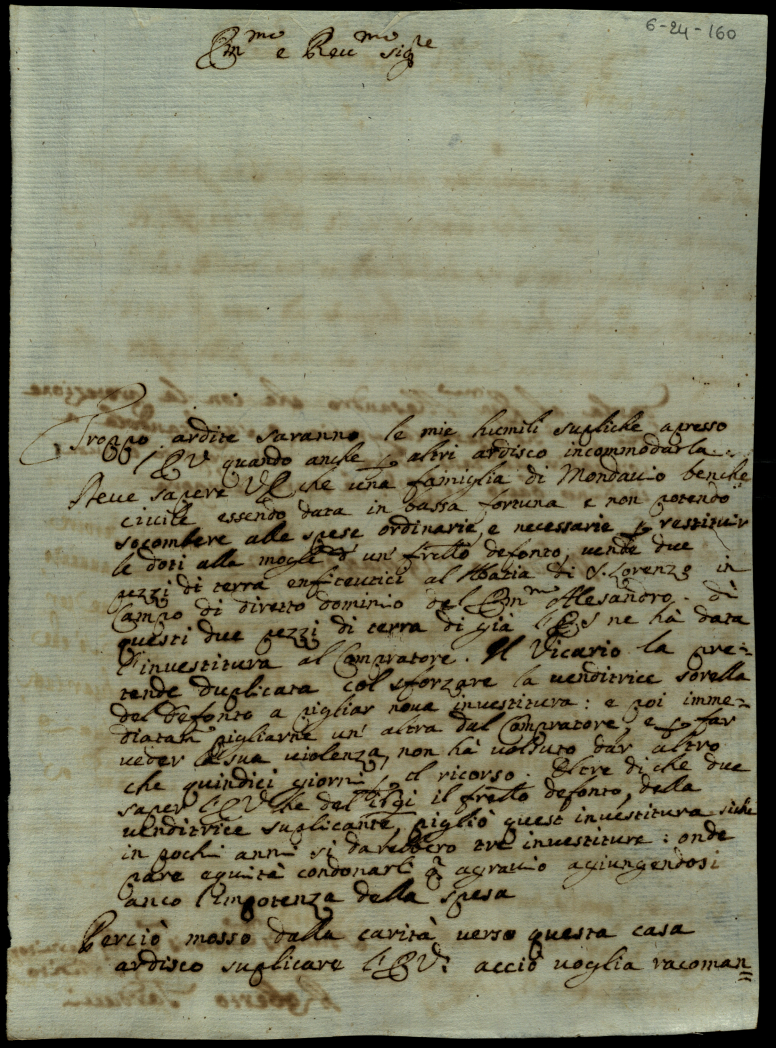 6-24-160
Em.mo e Reu.mo Sig.re
Troppo ardite saranno le mie humili supliche apresso
l'E.V. quando anche p altri ardisco incommodarla.
Deue sapere V.E. che una famiglia di Mondauio benche
ciuile essendo data in bassa fortuna e non potendo
socombere alle spese ordinarie, e necessarie p restituir
le doti alla moglie d' un' frãllo defonto, uende due
pezzi di terra enfiteutici al Abatia di S. Lorenzo in
Campo di diretto dominio del Em.mo Alesandro. di
questi due pezzi di terra di già l'E.S. ne hà data
l'inuestitura al Compratore. Il Vicario la pre=
tende duplicata col sforzare la uenditrice sorella
del defonto a pigliar noua inuestitura: e poi imme=
diatam pigliarne un' altra dal Compratore; e p far
ueder la sua uiolenza, non hà uolsuto dar altro
che quindici giorni p il ricorso. Oltre di che due
saper l'E.V. che del il frãllo defonto, della
uenditrice suplicante, pigliò quest inuestitura siche
in pochi anni si darebbero tre inuestiture: onde
pare equità condonarli q agrauio agiungendosi
anco l'impotenza della spesa
Perciò mosso dalla carità uerso questa casa
ardisco suplicare l'E.V. acciò uoglia racoman=